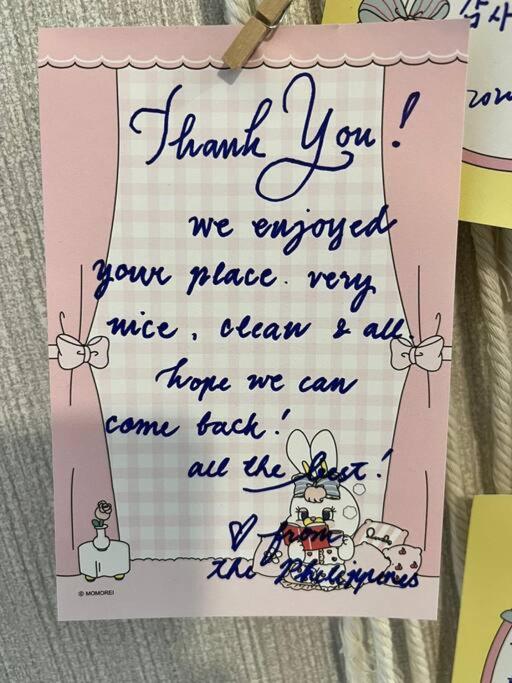 Thank You!
we enjoyed
your place. very
nice, clean & all.
hope we can
come back!
all the best!
♡ from
the Philippines
© MOMOREI
감사